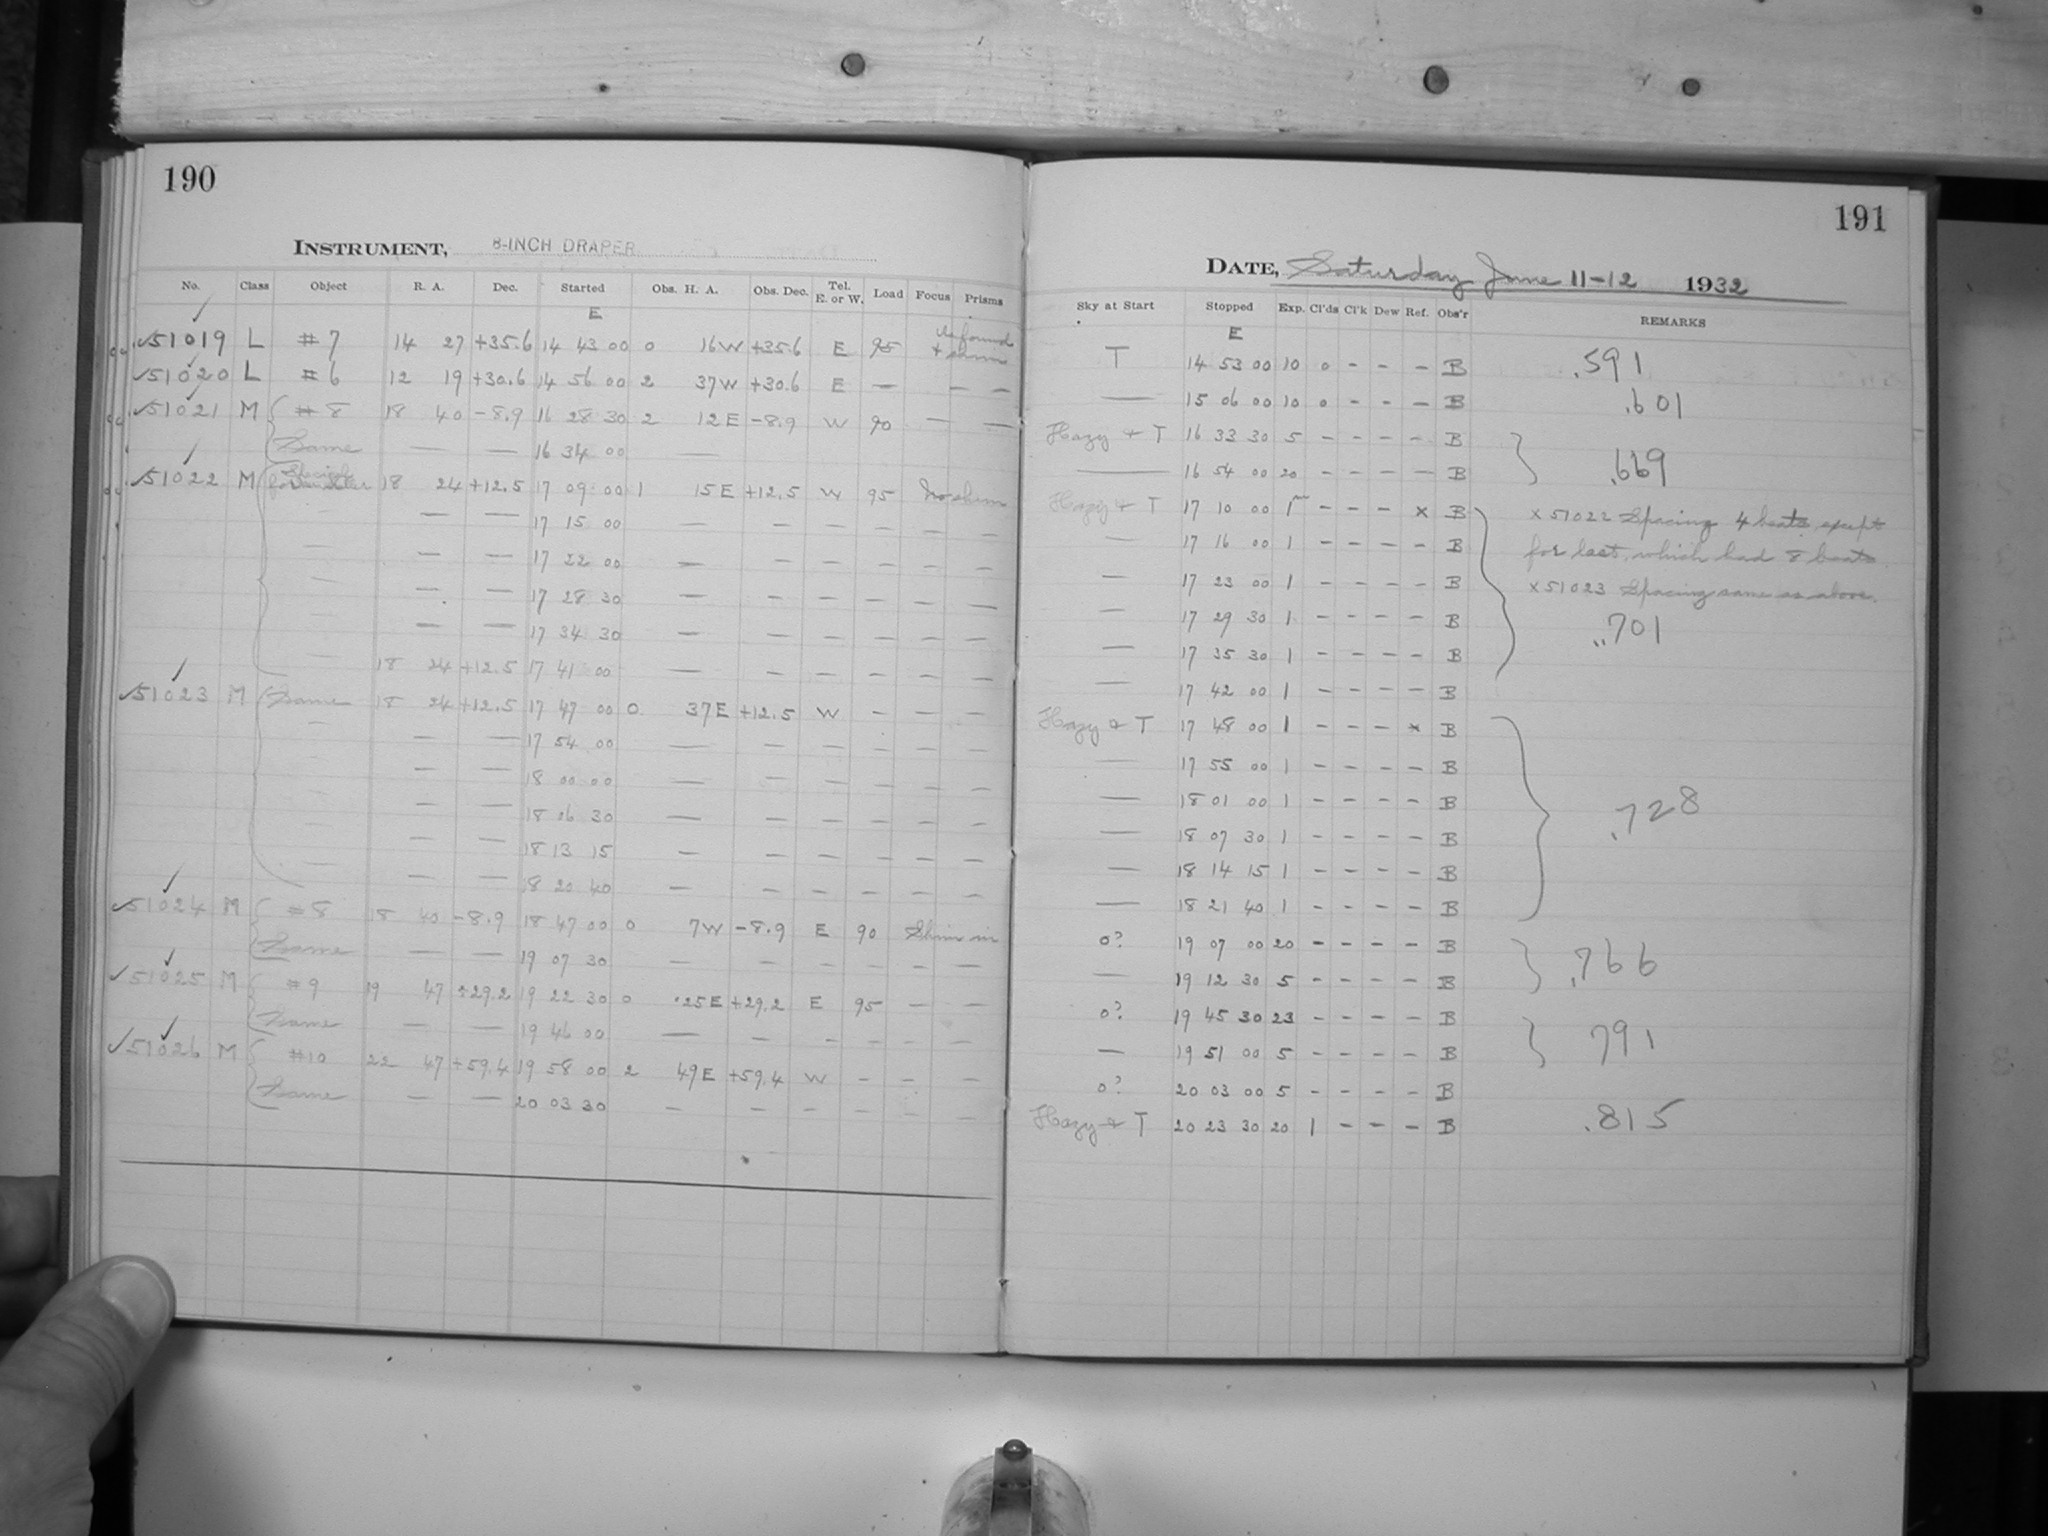 190
INSTRUMENT, 8-INCH DRAPER
No. Class Object R. A. Dec. Started Obs. H. A. Obs. Dec. Tel. E. or W. Load Focus Prisms
E
51019 L #7 14 27 +35.6 14 43 00 0 16W +35.6 E 95 As found + shim
51020 L #6 12 19 +30.6 14 56 00 2 37W +30.6 E — — —
51021 M #8 18 40 -8.9 16 28 30 2 12E -8.9 W 90 — —
Same — — 16 34 00 —
51022 M Special 18 24 +12.5 17 09 00 1 15E +12.5 W 95 No shim
— — — 17 15 00 — — — — — —
— — — 17 22 00 — — — — — —
— — — 17 28 30 — — — — — —
— — — 17 34 30 — — — — — —
— 18 24 +12.5 17 41 00 — — — — — —
51023 M Same 18 24 +12.5 17 47 00 0 37E +12.5 W — — —
— — — 17 54 00 — — — — — —
— — — 18 00 00 — — — — — —
— — — 18 06 30 — — — — — —
— — — 18 13 15 — — — — — —
— — — 18 20 40 — — — — — —
51024 M #8 18 40 -8.9 18 47 00 0 7W -8.9 E 90 Shim in
Same — — 19 07 30 — — — — — —
51025 M #9 19 47 +29.2 19 22 30 0 25E +29.2 E 95 — —
Same — — 19 46 00 — — — — — —
51026 M #10 22 47 +59.4 19 58 00 2 49E +59.4 W — — —
Same — — 20 03 30 — — — — — —
191
DATE, Saturday June 11-12 1932
Sky at Start Stopped Exp. Cl'ds Cl'k Dew Ref. Obs'r REMARKS
E
T 14 53 00 10 0 - - - B .591
— 15 06 00 10 0 - - - B .601
Hazy + T 16 33 30 5 - - - - B
— 16 54 00 20 - - - - B .669
Hazy + T 17 10 00 1m - - - x B x 51022 Spacing 4 beats except
— 17 16 00 1 - - - - B for last, which had 8 beats
— 17 23 00 1 - - - - B x 51023 Spacing same as above.
— 17 29 30 1 - - - - B .701
— 17 35 30 1 - - - - B
— 17 42 00 1 - - - - B
Hazy + T 17 48 00 1 - - - x B
— 17 55 00 1 - - - - B
— 18 01 00 1 - - - - B .728
— 18 07 30 1 - - - - B
— 18 14 15 1 - - - - B
— 18 21 40 1 - - - - B
0? 19 07 00 20 - - - - B .766
— 19 12 30 5 - - - - B
0? 19 45 30 23 - - - - B 791
— 19 51 00 5 - - - - B
0? 20 03 00 5 - - - - B
Hazy + T 20 23 30 20 1 - - - B .815